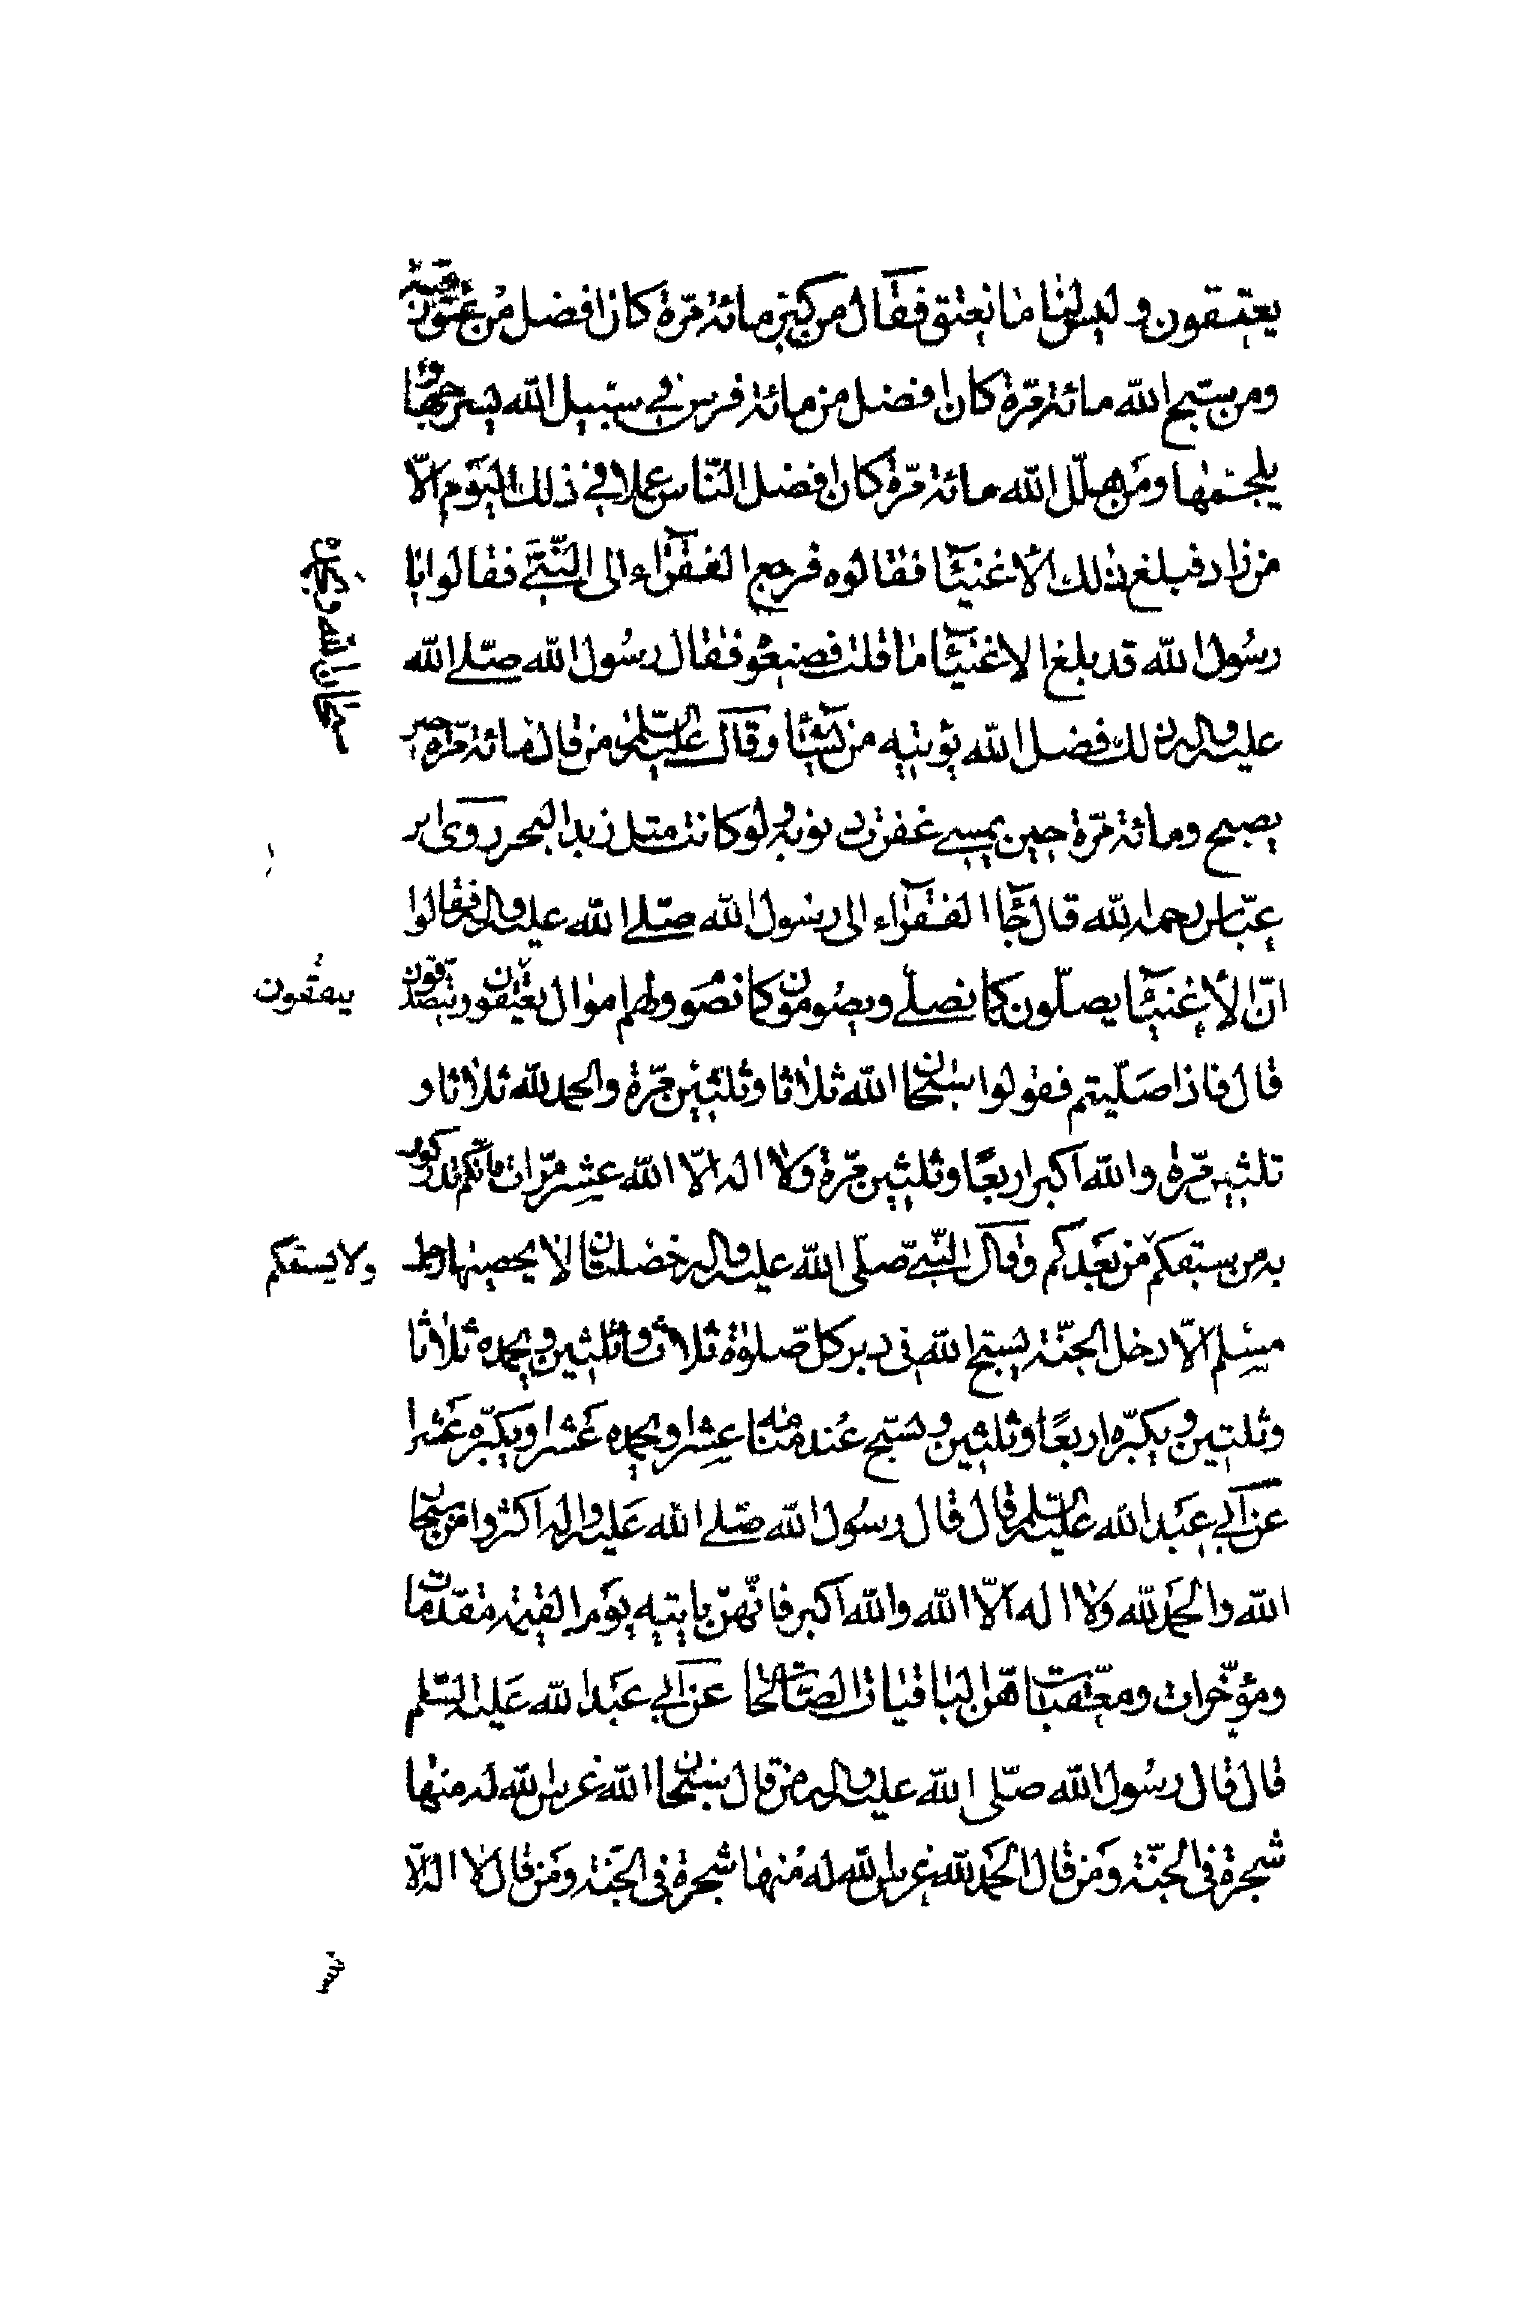 يعتقون وليس لنا ما نعتق فقال من كبر مائة مرة كان افضل من عتق رقبة
ومن سبح الله مائة مرة كان افضل من مائة فرس في سبيل الله يسرجها و
يلجمها ومن هلل الله مائة مرة كان افضل الناس عملا في ذلك اليوم الّا
من زاد فبلغ ذلك الأغنيآء فقالوه فرجع الفقرآء الى النبي فقالوا يا
رسول الله قد بلغ الاغنيآء ما قلت فصنعوه فقال رسول الله صلى الله
عليه واله ذلك فضل الله يؤتيه من يشآء وقال عليه السلم من قال مائة مرة حين
يصبح ومائة مرة حين يمسي غفرت ذنوبه ولو كانت مثل زبد البحر روى ابن
عبّاس رحمه الله قال جآء الفقرآء الى رسول الله صلى الله عليه واله فقالوا
انّ الأغنيآء يصلّون كما نصلي ويصومون كما نصوم ولهم اموال يعتقون ويتصدقون
قال فاذا صلّيتم فقولوا سبحان الله ثلاثا وثلثين مرّة والحمد لله ثلاثا و
ثلثين مرّة والله اكبر اربعًا وثلثين مرّة ولا اله الّا الله عشر مرّات فانكم تدركون
به من سبقكم من بعدكم وقال النبي صلّى الله عليه واله خصلتان لا يحصيهما رجل
مسلم الّا دخل الجنّة يسبح الله في دبر كل صلوة ثلاثا وثلثين ويحمده ثلاثا
وثلثين ويكبّره اربعًا وثلثين ويسبّح عند منامه عشرا ويحمده عشرا ويكبّره عشرا
عن أبي عبد الله عليه السلم قال قال رسول الله صلى الله عليه واله اكثروا من سبحان
الله والحمد لله ولا اله الّا الله والله اكبر فانّهنّ ياتيه يوم القيمة مقدمات
ومؤخّرات ومعقّبات هنّ الباقيات الصالحات عن أبي عبد الله عليه السلم
قال قال رسول الله صلّى الله عليه واله من قال سبحان الله غرس الله له منها
شجرة في الجنّة ومن قال الحمد لله غرس الله له منها شجرة في الجنّة ومن قال لا اله الّا
سبحان الله وبحمده
ينفقون
ولا يسبقكم